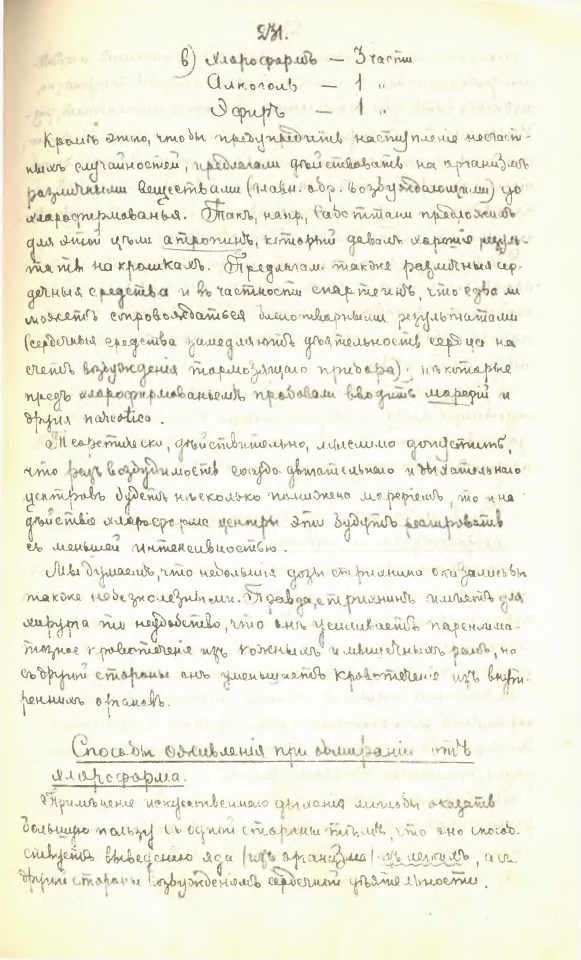 231.
в) Хлороформъ — 3 части
Алкоголь — 1 „
Эфиръ — 1 „
Кромѣ этого, чтобы предупредить наступленіе несчаст-
ныхъ случайностей, предлагали дѣйствовать на организмъ
различными веществами (главн. обр. возбуждающими) до
хлороформованья. Такъ, напр, предложилъ
для этой цѣли атропинъ, который давалъ хорошіе резуль-
таты на кроликахъ. Предлагали также различныя сер-
дечныя средства и въ частности спартеинъ, что едва ли
можетъ сопровождаться благотворными результатами
(сердечныя средства замедляютъ дѣятельность сердца на
счетъ возбужденія тормозящаго прибора); нѣкоторые
предъ хлороформированьемъ пробовали вводить морфій и
другія narcotica.
Теоретически, дѣйствительно, мыслимо допустить,
что разъ возбудимость сосудодвигательнаго и дыхательнаго
центровъ будетъ нѣсколько понижена морфіемъ, то и на
дѣйствіе хлороформа центры эти будутъ реагировать
съ меньшей интенсивностью.
Мы думаемъ, что небольшія дозы стрихнина оказались бы
также небезполезными. Правда, стрихнинъ имѣетъ для
хирурга то неудобство, что онъ усиливаетъ паренхима-
тозное кровотеченіе изъ кожныхъ и мышечныхъ ранъ, но
съ другой стороны онъ уменьшаетъ кровотеченіе изъ внут-
реннихъ органовъ.
Способы оживленія при обмираніи отъ
хлороформа.
Примѣненіе искусственнаго дыханія могло бы оказать
большую пользу съ одной стороны тѣмъ, что оно способ-
ствуетъ выведенію яда (изъ организма) изъ легкихъ, а съ
другой стороны возбужденіемъ сердечной дѣятельности.